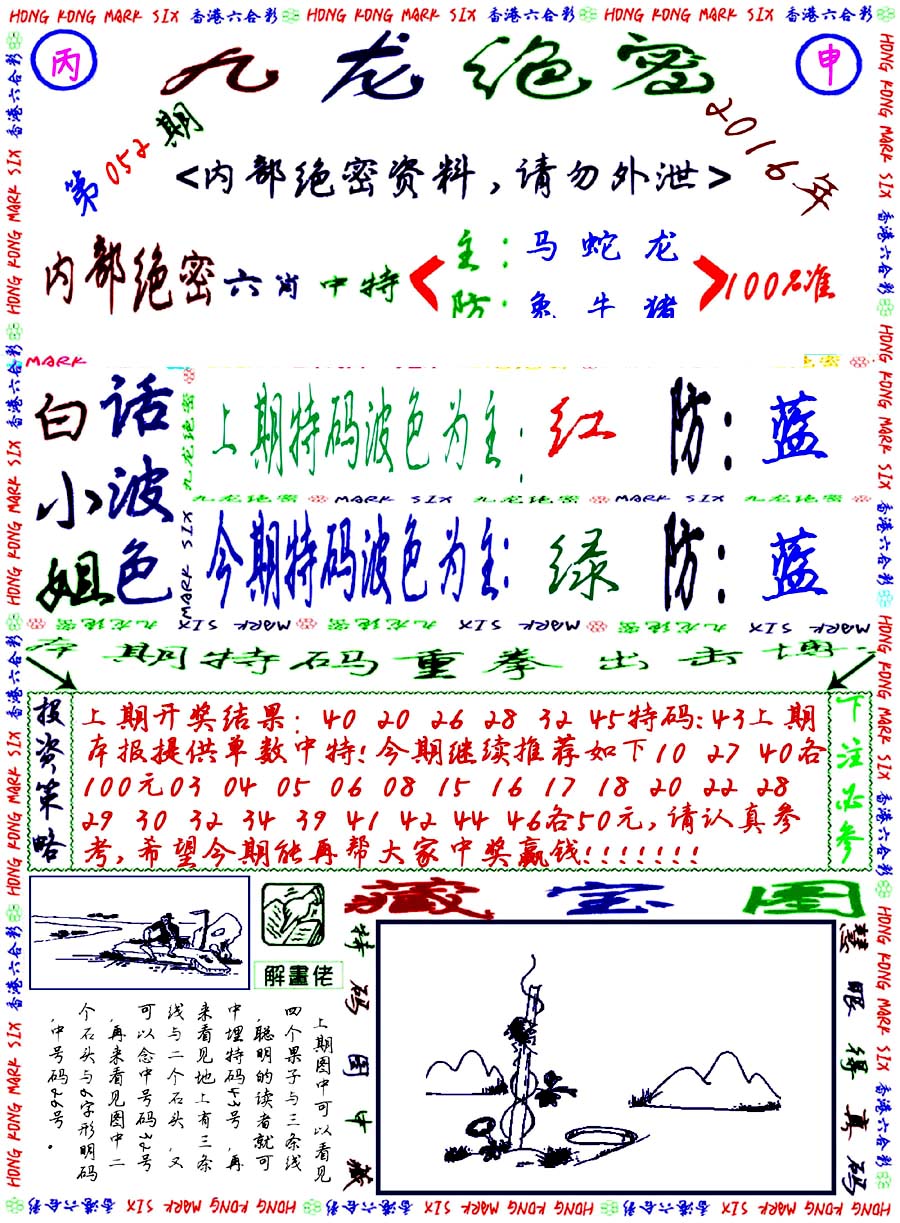 HONG KONG MARK SIX 香港六合彩 HONG KONG MARK SIX 香港六合彩 HONG KONG MARK SIX 香港六合彩
丙
九龙绝密
申
第052期
2016年
<内部绝密资料，请勿外泄>
内部绝密六肖中特
主：马 蛇 龙
防：兔 牛 猪
100%准
MARK
白话小姐
波色
九龙绝密
MARK SIX
上期特码波色为主：红 防：蓝
九龙绝密 MARK SIX 九龙绝密 MARK SIX 九龙绝密
今期特码波色为主：绿 防：蓝
九龙绝密 MARK SIX 九龙绝密 MARK SIX 九龙绝密 MARK SIX
本期特码重拳出击博
投资策略
上期开奖结果：40 20 26 28 32 45特码:43上期
本报提供单数中特!今期继续推荐如下10 27 40各
100元03 04 05 06 08 15 16 17 18 20 22 28
29 30 32 34 39 41 42 44 46各50元,请认真参
考,希望今期能再帮大家中奖赢钱!!!!!!!
下注必参
解畫佬
藏宝图
特码图中藏
慧眼得真码
上期图中可以看见
四个果子与三条线
,聪明的读者就可
中埋特码43号,再
来看见地上有三条
线与二个石头,又
可以念中号码32号
,再来看见图中二
个石头与6字形明码
,中号码26号。
HONG KONG MARK SIX 香港六合彩 HONG KONG MARK SIX 香港六合彩 HONG KONG MARK SIX 香港六合彩